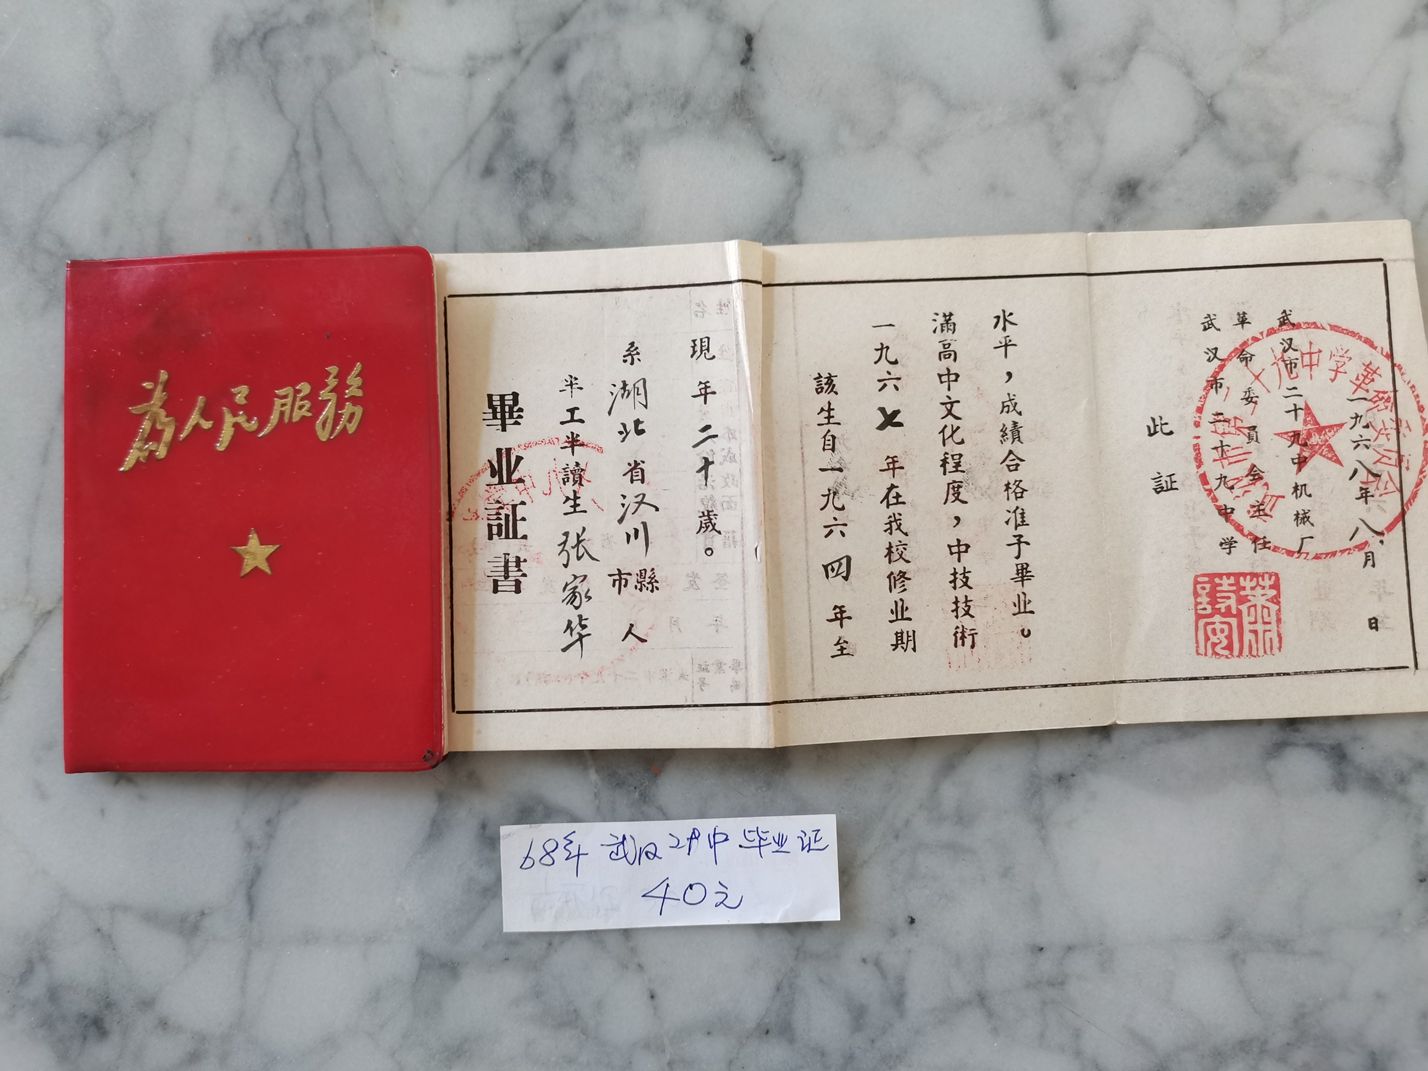 为人民服務
畢业証書
半工半讀生张家华
系湖北省汉川縣市人
現年二十歲。
該生自一九六四年至
一九六七年在我校修业期
滿高中文化程度，中技技術
水平，成績合格准予畢业。
此証
武汉市二十九中学
革命委員会主任
武汉市二十九中机械厂
一九六八年八月 日
68年 武汉29中 毕业证
40元